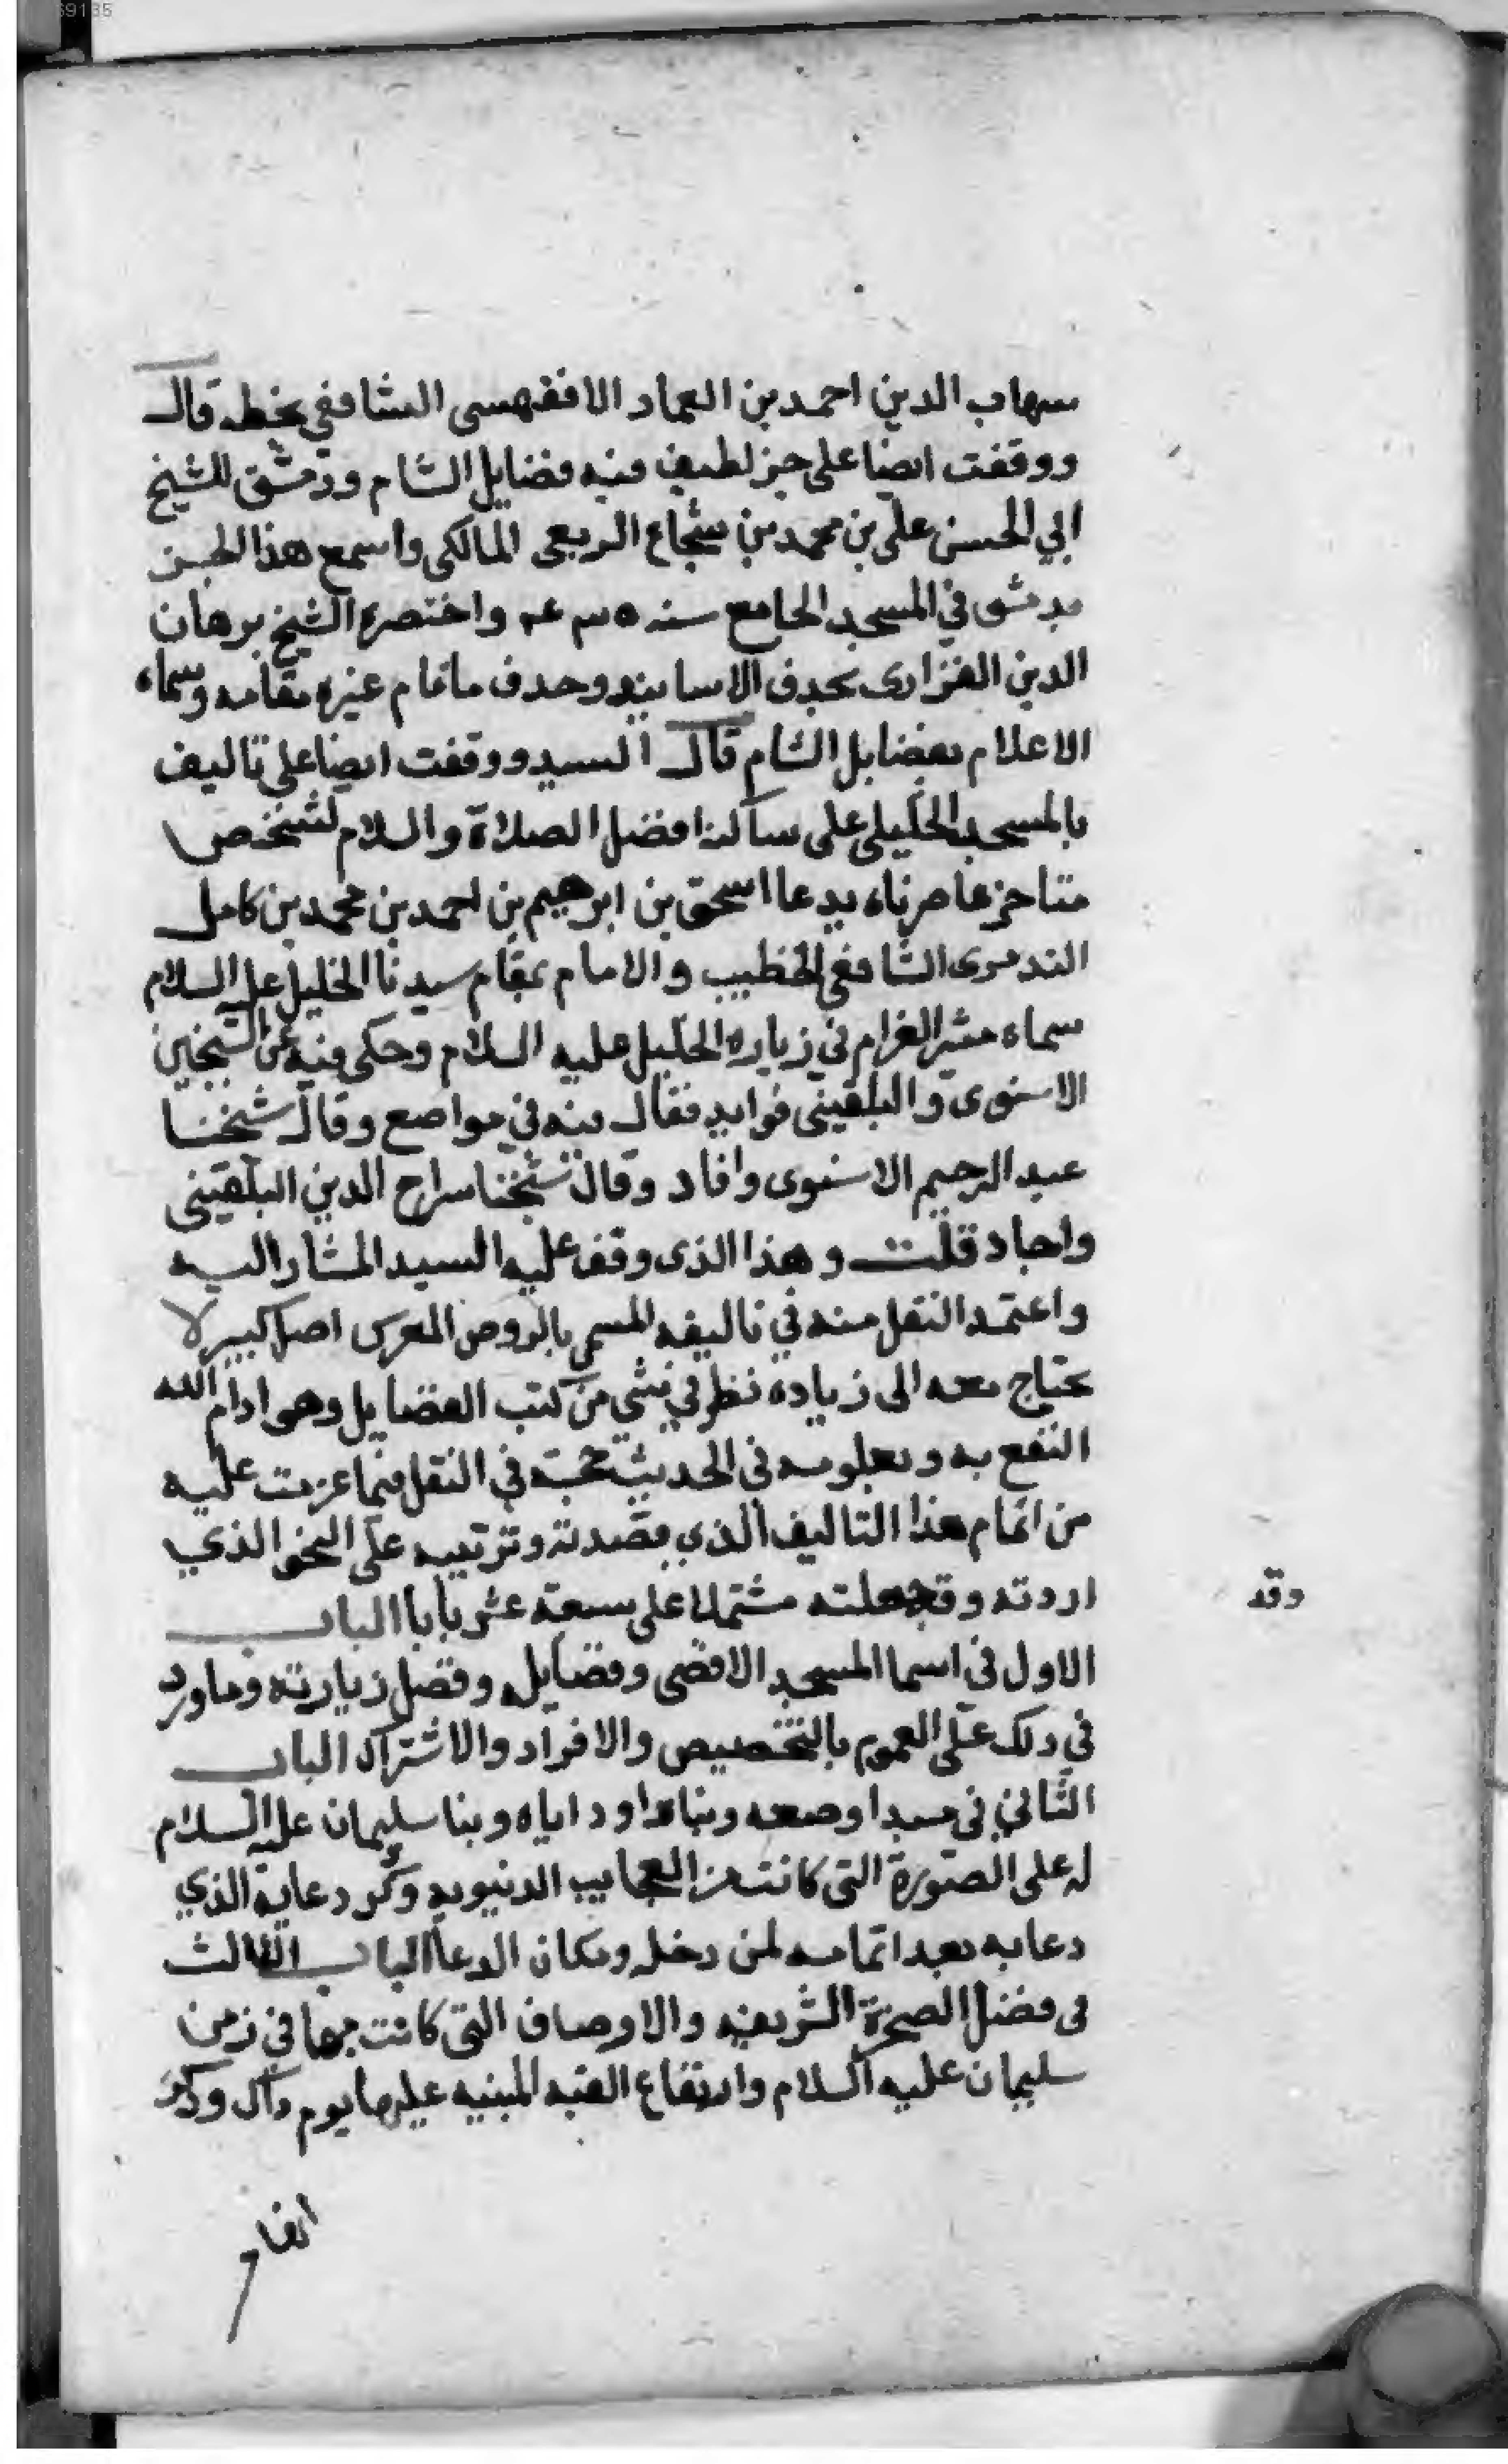 69135
سهاب الدين احمد بن العماد الاقفهسى الشافعي بخطه قال
ووقفت ايضا على جز لطيف فيه فضايل الشام ودمشق للشيخ
ابي الحسن على بن محمد بن شجاع الربعى المالكى واسمع هذا الجز
بدمشق في المسجد الجامع سنه ٤٣٥ واختصره الشيخ برهان
الدين الفزارى بحدف الاسانيد وحدف ماقام غيره مقامه وسماه
الاعلام بفضايل الشام قال السيد ووقفت ايضا على تاليف
بالمسجد الخليلى على ساكنه افضل الصلاة والسلام لشخص
متاخر عاصرناه يدعا اسحق بن ابرهيم بن احمد بن محمد بن كامل
التدمرى الشافعي الخطيب والامام بمقام سيدنا الخليل عليه السلام
سماه مثير الغرام في زياره الخليل عليه السلام وحكى فيه عن الشيخين
الاسنوى والبلقيني فوايد فقال فيه في مواضع وقال شيخنا
عبد الرحيم الاسنوى وافاد وقال شيخنا سراج الدين البلقيني
واجاد قلت وهذا الذى وقف عليه السيد المشار اليه
واعتمد النقل منه في تاليفه المسمى بالروض المغرس اصل كبير لا
يحتاج معه الى زيادة نظر في شي من كتب الفضايل وهو ادام الله
النفع به وبعلومه في الحديث حجة في النقل فيما عزمت عليه
من اتمام هذا التاليف الذي قصدته وترتيبه على النحو الذي
اردته وقد جعلته مشتملا على سبعة عشر بابا الباب
وقد
الاول في اسما المسجد الاقصى وفضايله وفضل زيارته وما ورد
في دلك على العموم بالتخصيص والافراد والاشتراك الباب
الثاني في مبدا وضعه وبنا داود اياه وبنا سليمان عليه السلام
له على الصورة التى كانت من العجايب الدنيويه وذكر دعايه الذي
دعا به بعد اتمامه لمن دخله ومكان الدعا الباب الثالث
فى فضل الصخرة الشريفه والاوصاف التى كانت بها في زمن
سليمان عليه السلام وارتفاع القبه المبنيه عليها يوم داك وذكر